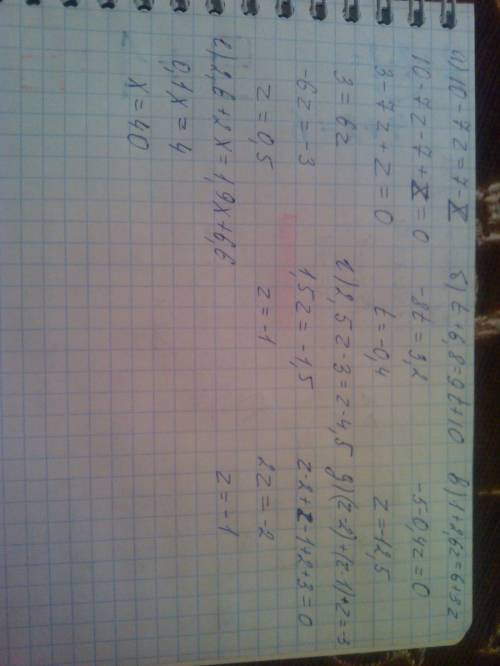 а) 10 - 7z = 7 - z
10 - 7z - 7 + z = 0
3 - 7z + z = 0
3 = 6z
-6z = -3
z = 0,5
б) t + 6,8 = 9t + 10
-8t = 3,2
t = -0,4
в) 1 + 2,6z = 6 + 3z
-5 - 0,4z = 0
z = -12,5
г) 2,5z - 3 = z - 4,5
1,5z = -1,5
z = -1
д) (z-2) + (z-1) + 2 = -3
z - 2 + z - 1 + 2 + 3 = 0
2z = -2
z = -1
е) 2,6 + 2x = 1,9x + 6,6
0,1x = 4
x = 40